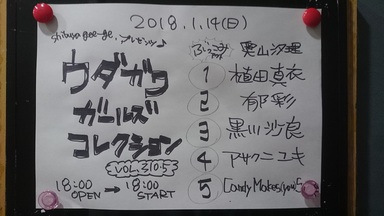 2018.1.14(日)
shibuya gee-ge. プレゼンツ♪
ウダガワ
ガールズ
コレクション
VOL.310.5
18:00 OPEN → 18:00 START
奥山沙理
1 植田真衣
2 郁彩
3 黒川沙良
4 アサクニユキ
5 Candy Makes you